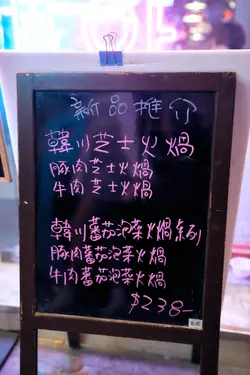 新品推介
韓川芝士火鍋
豚肉芝士火鍋
牛肉芝士火鍋
韓川蕃茄泡菜火鍋系列
豚肉蕃茄泡菜火鍋
牛肉蕃茄泡菜火鍋
$238-